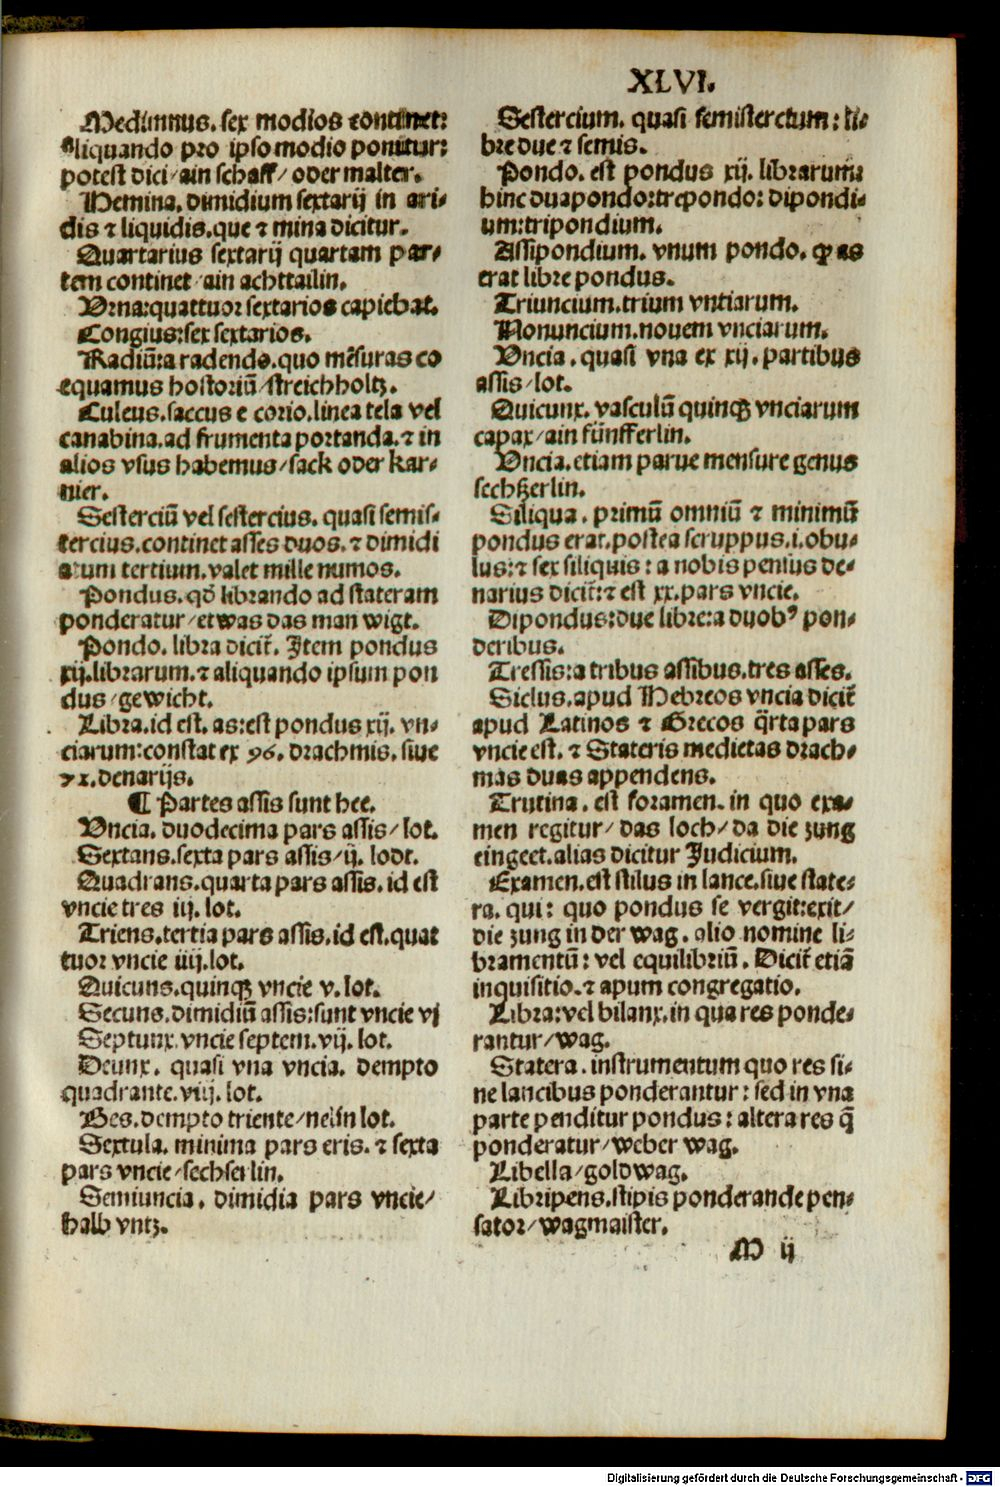 XLVI.
Medimnus. sex modios continet:
aliquando pro ipso modio ponitur:
potest dici/ain schaff/oder malter.
Hemina. dimidium sextarij in ari⸗
dis ⁊ liquidis. que ⁊ mina dicitur.
Quartarius sextarij quartam par⸗
tem continet/ain achttailin.
Vrna: quattuor sextarios capiebat.
Congius: sex sextarios.
Radiū: a radendo. quo mēsuras co
equamus hostoriū/streichholtz.
Culeus. saccus e corio. linea tela vel
canabina. ad frumenta portanda. ⁊ in
alios vsus habemus/sack oder kar⸗
nier.
Sesterciū vel sestercius. quasi semis⸗
tercius. continet asses duos. ⁊ dimidi
atum tertium. valet mille numos.
Pondus. qō librando ad stateram
ponderatur/etwas das man wigt.
Pondo. libra dicit̄. Item pondus
xij. librarum. ⁊ aliquando ipsum pon
dus/gewicht.
Libra. id est. as: est pondus xij. vn⸗
ciarum: constat ex 96. drachmis. siue
72. denarijs.
¶ Partes assis sunt hee.
Vncia. duodecima pars assis/lot.
Sextans. sexta pars assis/ij. lodt.
Quadrans. quarta pars assis. id est
vncie tres iij. lot.
Triens. tertia pars assis. id est. quat
tuor vncie iiij. lot.
Quicuns. quinqꝫ vncie v. lot.
Secuns. dimidiū assis: sunt vncie vj
Septunx. vncie septem. vij. lot.
Deunx. quasi vna vncia. dempto
quadrante. viij. lot.
Bes. dempto triente/neün lot.
Sextula. minima pars eris. ⁊ sexta
pars vncie/sechserlin.
Semiuncia. dimidia pars vncie/
halb vntz.
Sestercium. quasi semistercium: li⸗
bre due ⁊ semis.
Pondo. est pondus xij. librarum:
hinc duapondo: trepondo: dipondi⸗
um: tripondium.
Assipondium. vnum pondo. ꝙ as
erat libre pondus.
Triuncium. trium vntiarum.
Nonuncium. nouem vnciarum.
Vncia. quasi vna ex xij. partibus
assis/lot.
Quicunx. vasculū quinqꝫ vnciarum
capax/ain fünfferlin.
Vncia. etiam parue mensure genus
sechßerlin.
Siliqua. primū omniū ⁊ minimū
pondus erat. postea scruppus. i. obu⸗
lus: ⁊ sex siliquis: a nobis penlus de⸗
narius dicit̄: ⁊ est xx. pars vncie.
Dipondus: due libre: a duobꝰ pon⸗
deribus.
Tressis: a tribus assibus. tres asses.
Siclus. apud Hebreos vncia dicit̄
apud Latinos ⁊ Grecos q̄rta pars
vncie est. ⁊ Stateris medietas drach⸗
mas duas appendens.
Trutina. est foramen. in quo exa⸗
men regitur/das loch/da die zung
eingeet. alias dicitur Judicium.
Examen. est stilus in lance. siue state⸗
ra. qui: quo pondus se vergit: exit/
die zung in der wag. alio nomine li⸗
bramentū: vel equilibriū. Dicit̄ etiā
inquisitio. ⁊ apum congregatio.
Libra: vel bilanx. in qua res ponde⸗
rantur/wag.
Statera. instrumentum quo res si⸗
ne lancibus ponderantur: sed in vna
parte penditur pondus: altera res q̄
ponderatur/weber wag.
Libella/goldwag.
Libripens. stipis ponderande pen⸗
sator/wagmaister.
M ij
Digitalisierung gefördert durch die Deutsche Forschungsgemeinschaft - DFG